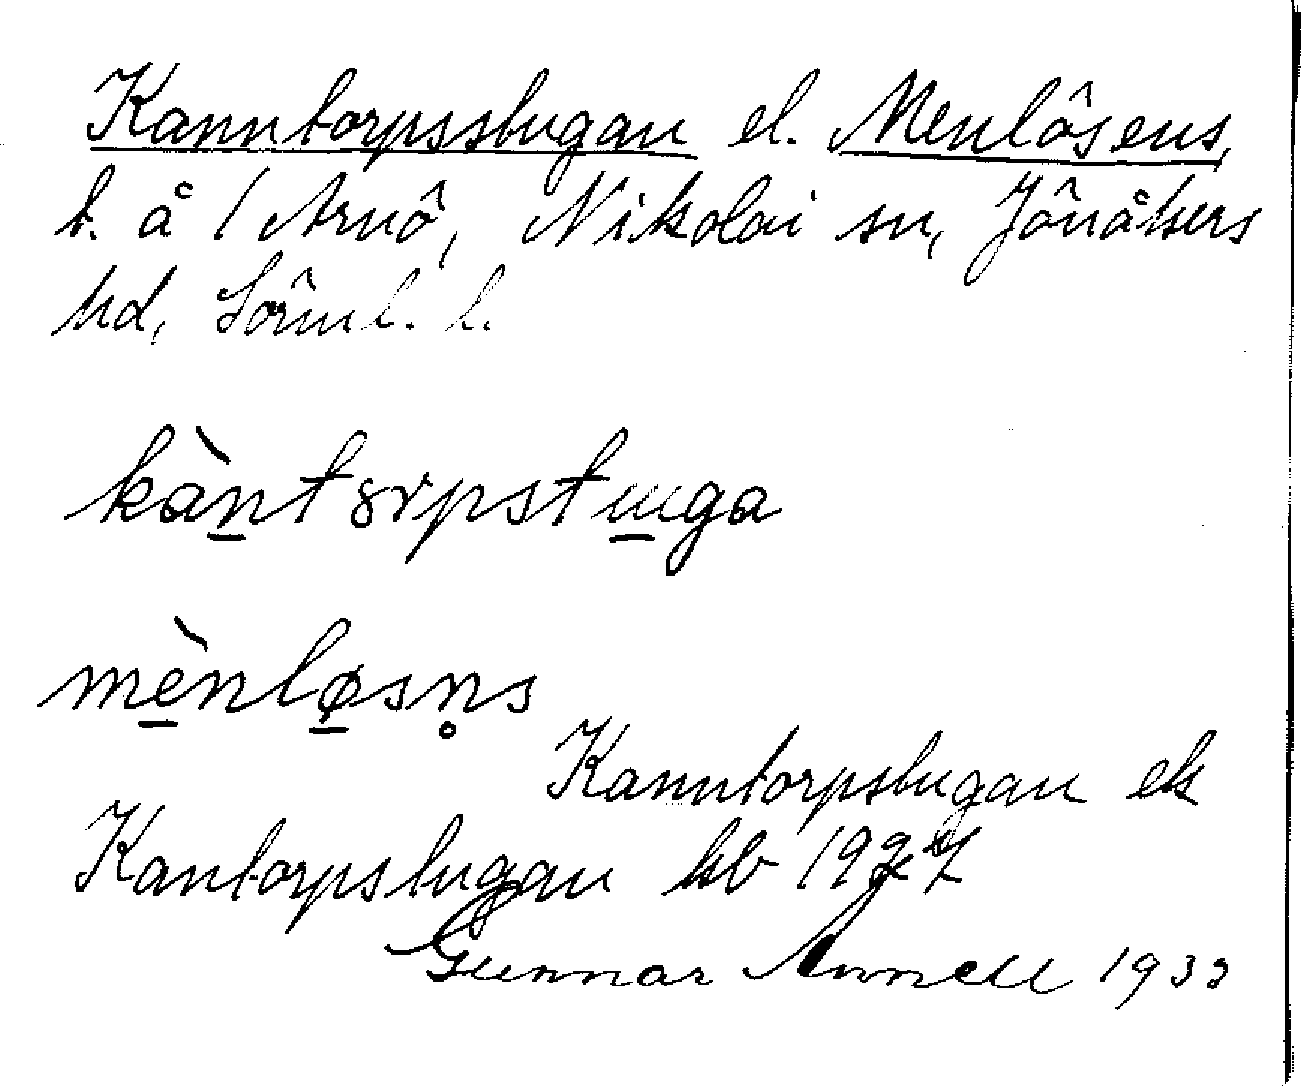 Kanntorpsstugan el. Menlösens,
t. å 1 Arnö, Nikolai sn, Jönåkers
hd, Sörml. l.
kàn̲tɤrpstɯ̲ga
mè̲nlø̲sn̥s
Kanntorpstugan ek
Kantorpstugan kb 1927
Gunnar Annell 1933